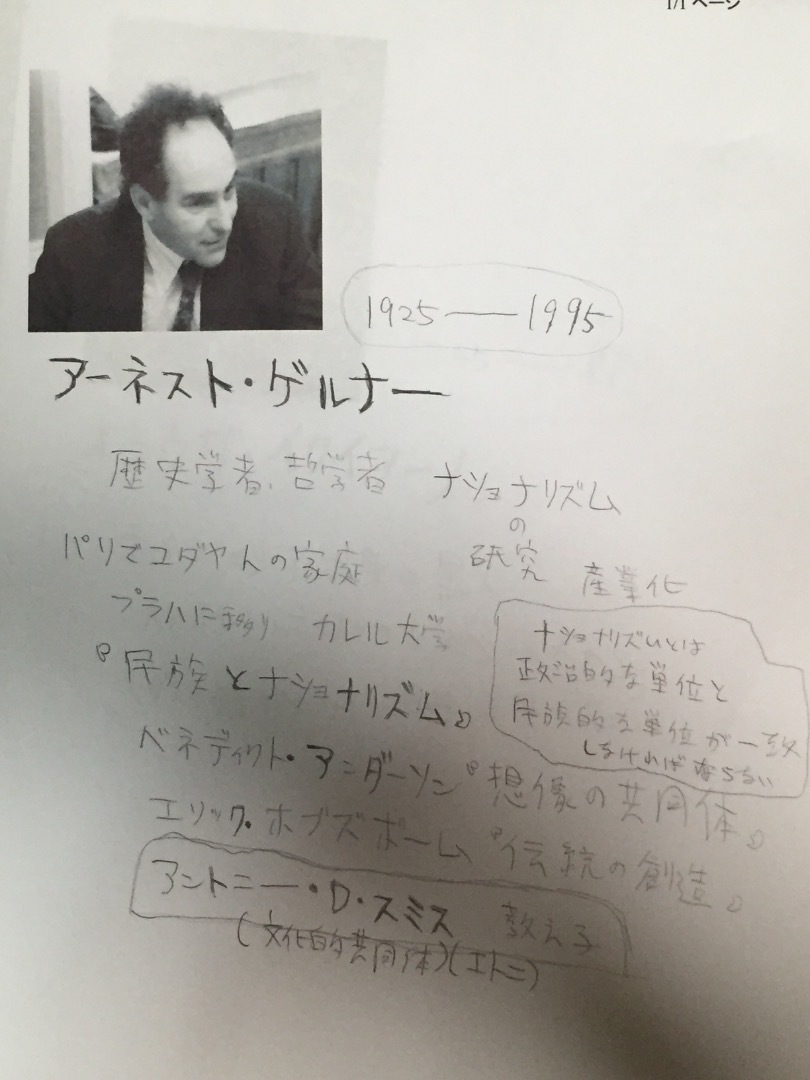 1/1 ページ
1925 ── 1995
アーネスト・ゲルナー
歴史学者、哲学者
ナショナリズム
の
研究
パリでユダヤ人の家庭
産業化
プラハに移り カレル大学
ナショナリズムとは
政治的な単位と
民族的な単位が一致
しなければならない
『民族とナショナリズム』
ベネディクト・アンダーソン『想像の共同体』
エリック・ホブズボーム『伝統の創造』
アントニー・D・スミス 教え子
(文化的共同体)(エトニ)